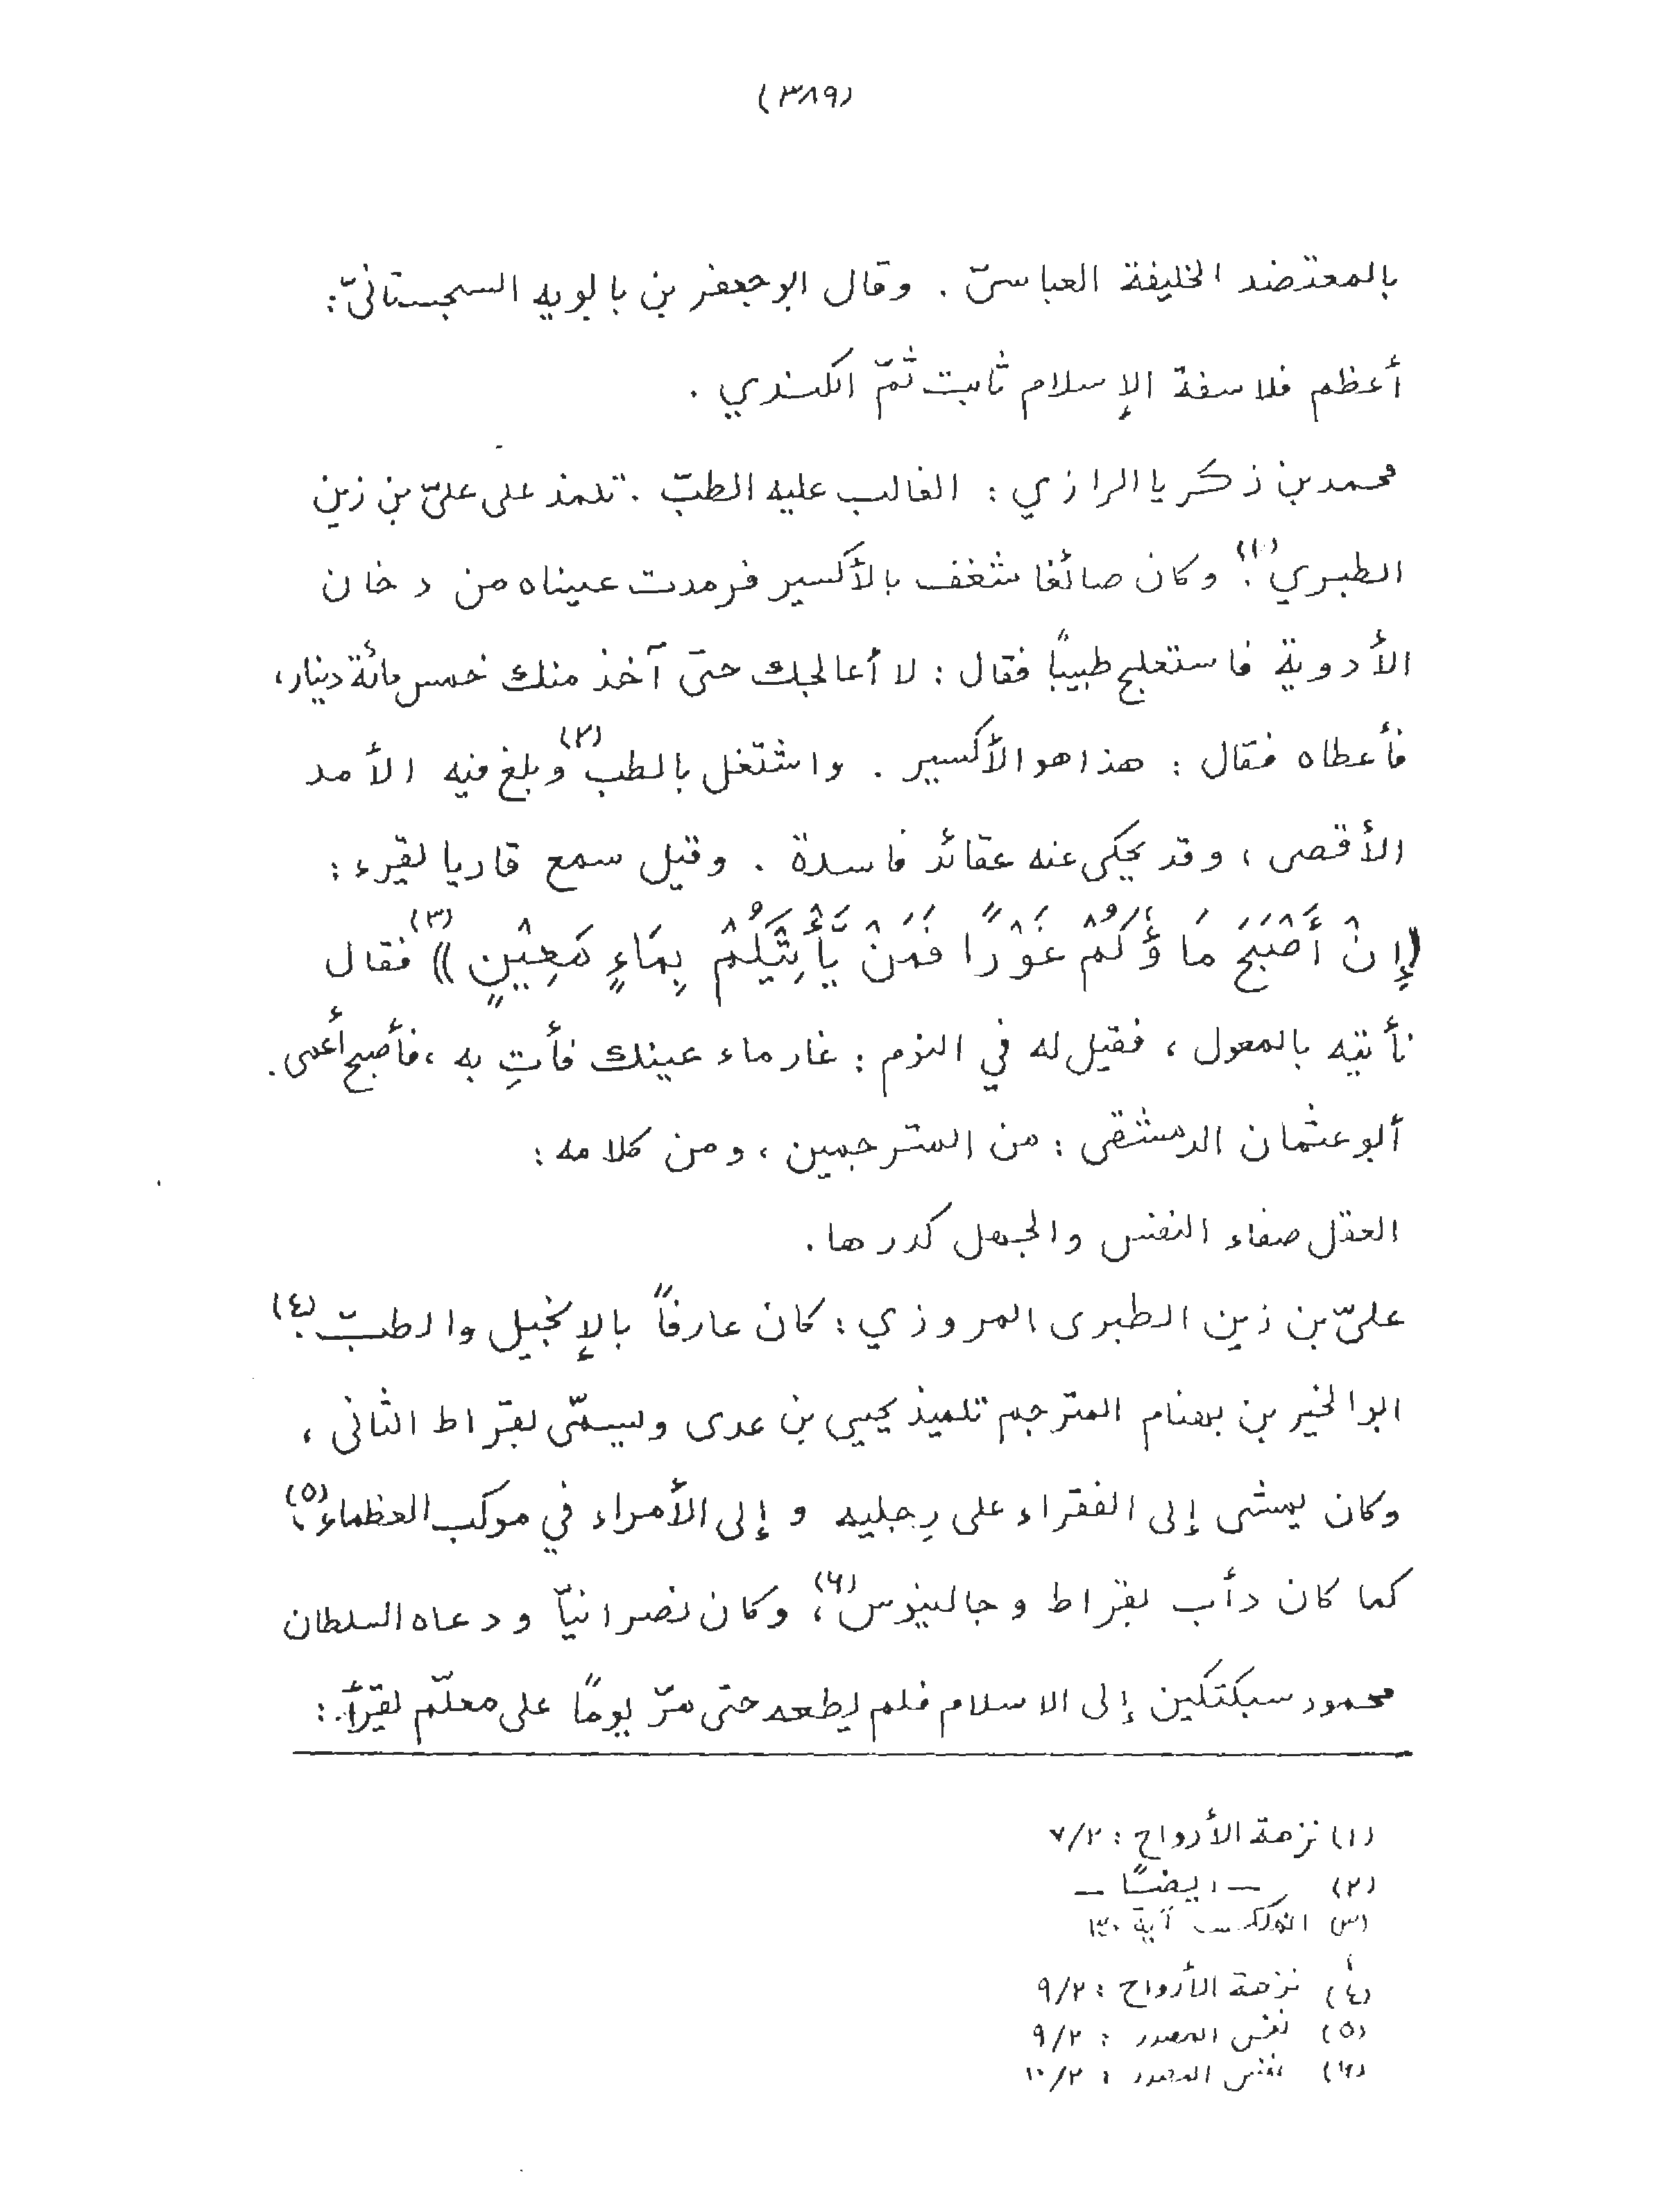 (٣٨٩)
بالمعتضد الخليفة العباسيّ . وقال ابو جعفر بن بالويه السجستانيّ :
أعظم فلاسفة الإسلام ثابت ثمّ الكندي .
محمد بن ذكريا الرازي : الغالب عليه الطبّ . تلمذ على عليّ بن زين
الطبري(١). وكان صائغا شغف بالأكسير فرمدت عيناه من دخان
الأدوية فاستعلج طبيبًا فقال : لا أعالجك حتىّ آخذ منك خمس مائة دينار،
فأعطاه فقال : هذا هو الأكسير . واشتغل بالطب(٢) وبلغ فيه الأمد
الأقصى ، وقد يحكى عنه عقائد فاسدة . وقيل سمع قاريا يقرء :
(إِنْ أَصْبَحَ مَا ؤُكُمْ غَوْرًا فَمَنْ يَّأْتِيَكُمْ بِمَاءٍ مَعِيْنٍ ))(٣) فقال
نأتيه بالمعول ، فقيل له في النوم : غار ماء عينك فأتِ به ، فأصبح أعمى .
ألبو عثمان الدمشقي : من المترجمين ، ومن كلامه :
العقل صفاء النفس والجهل كدرها .
عليّ بن زين الطبرى المروزي : كان عارفاً بالإنجيل والطبّ .(٤)
ابو الخير بن بهنام المترجم تلميذ يحيى بن عدى ويسمّى بقراط الثانى ،
وكان يمشى إلى الفقراء على رِجليه و إلى الأمراء في موكب العظماء(٥)،
كما كان دأب بقراط وجالينوس(٦)، وكان نصرانيّا ودعاه السلطان
محمود سبكتكين إلى الاسلام فلم يطعه حتى مرّ يومًا على معلّم يقرأ :
(١) نزهة الأرواح : ٧/٢
(٢) – ايضًا –
(٣) الملك آية ٣٠
(٤) نزهة الأرواح : ٩/٢
(٥) نفس المصدر : ٩/٢
(٦) نفس المصدر : ١٠/٢